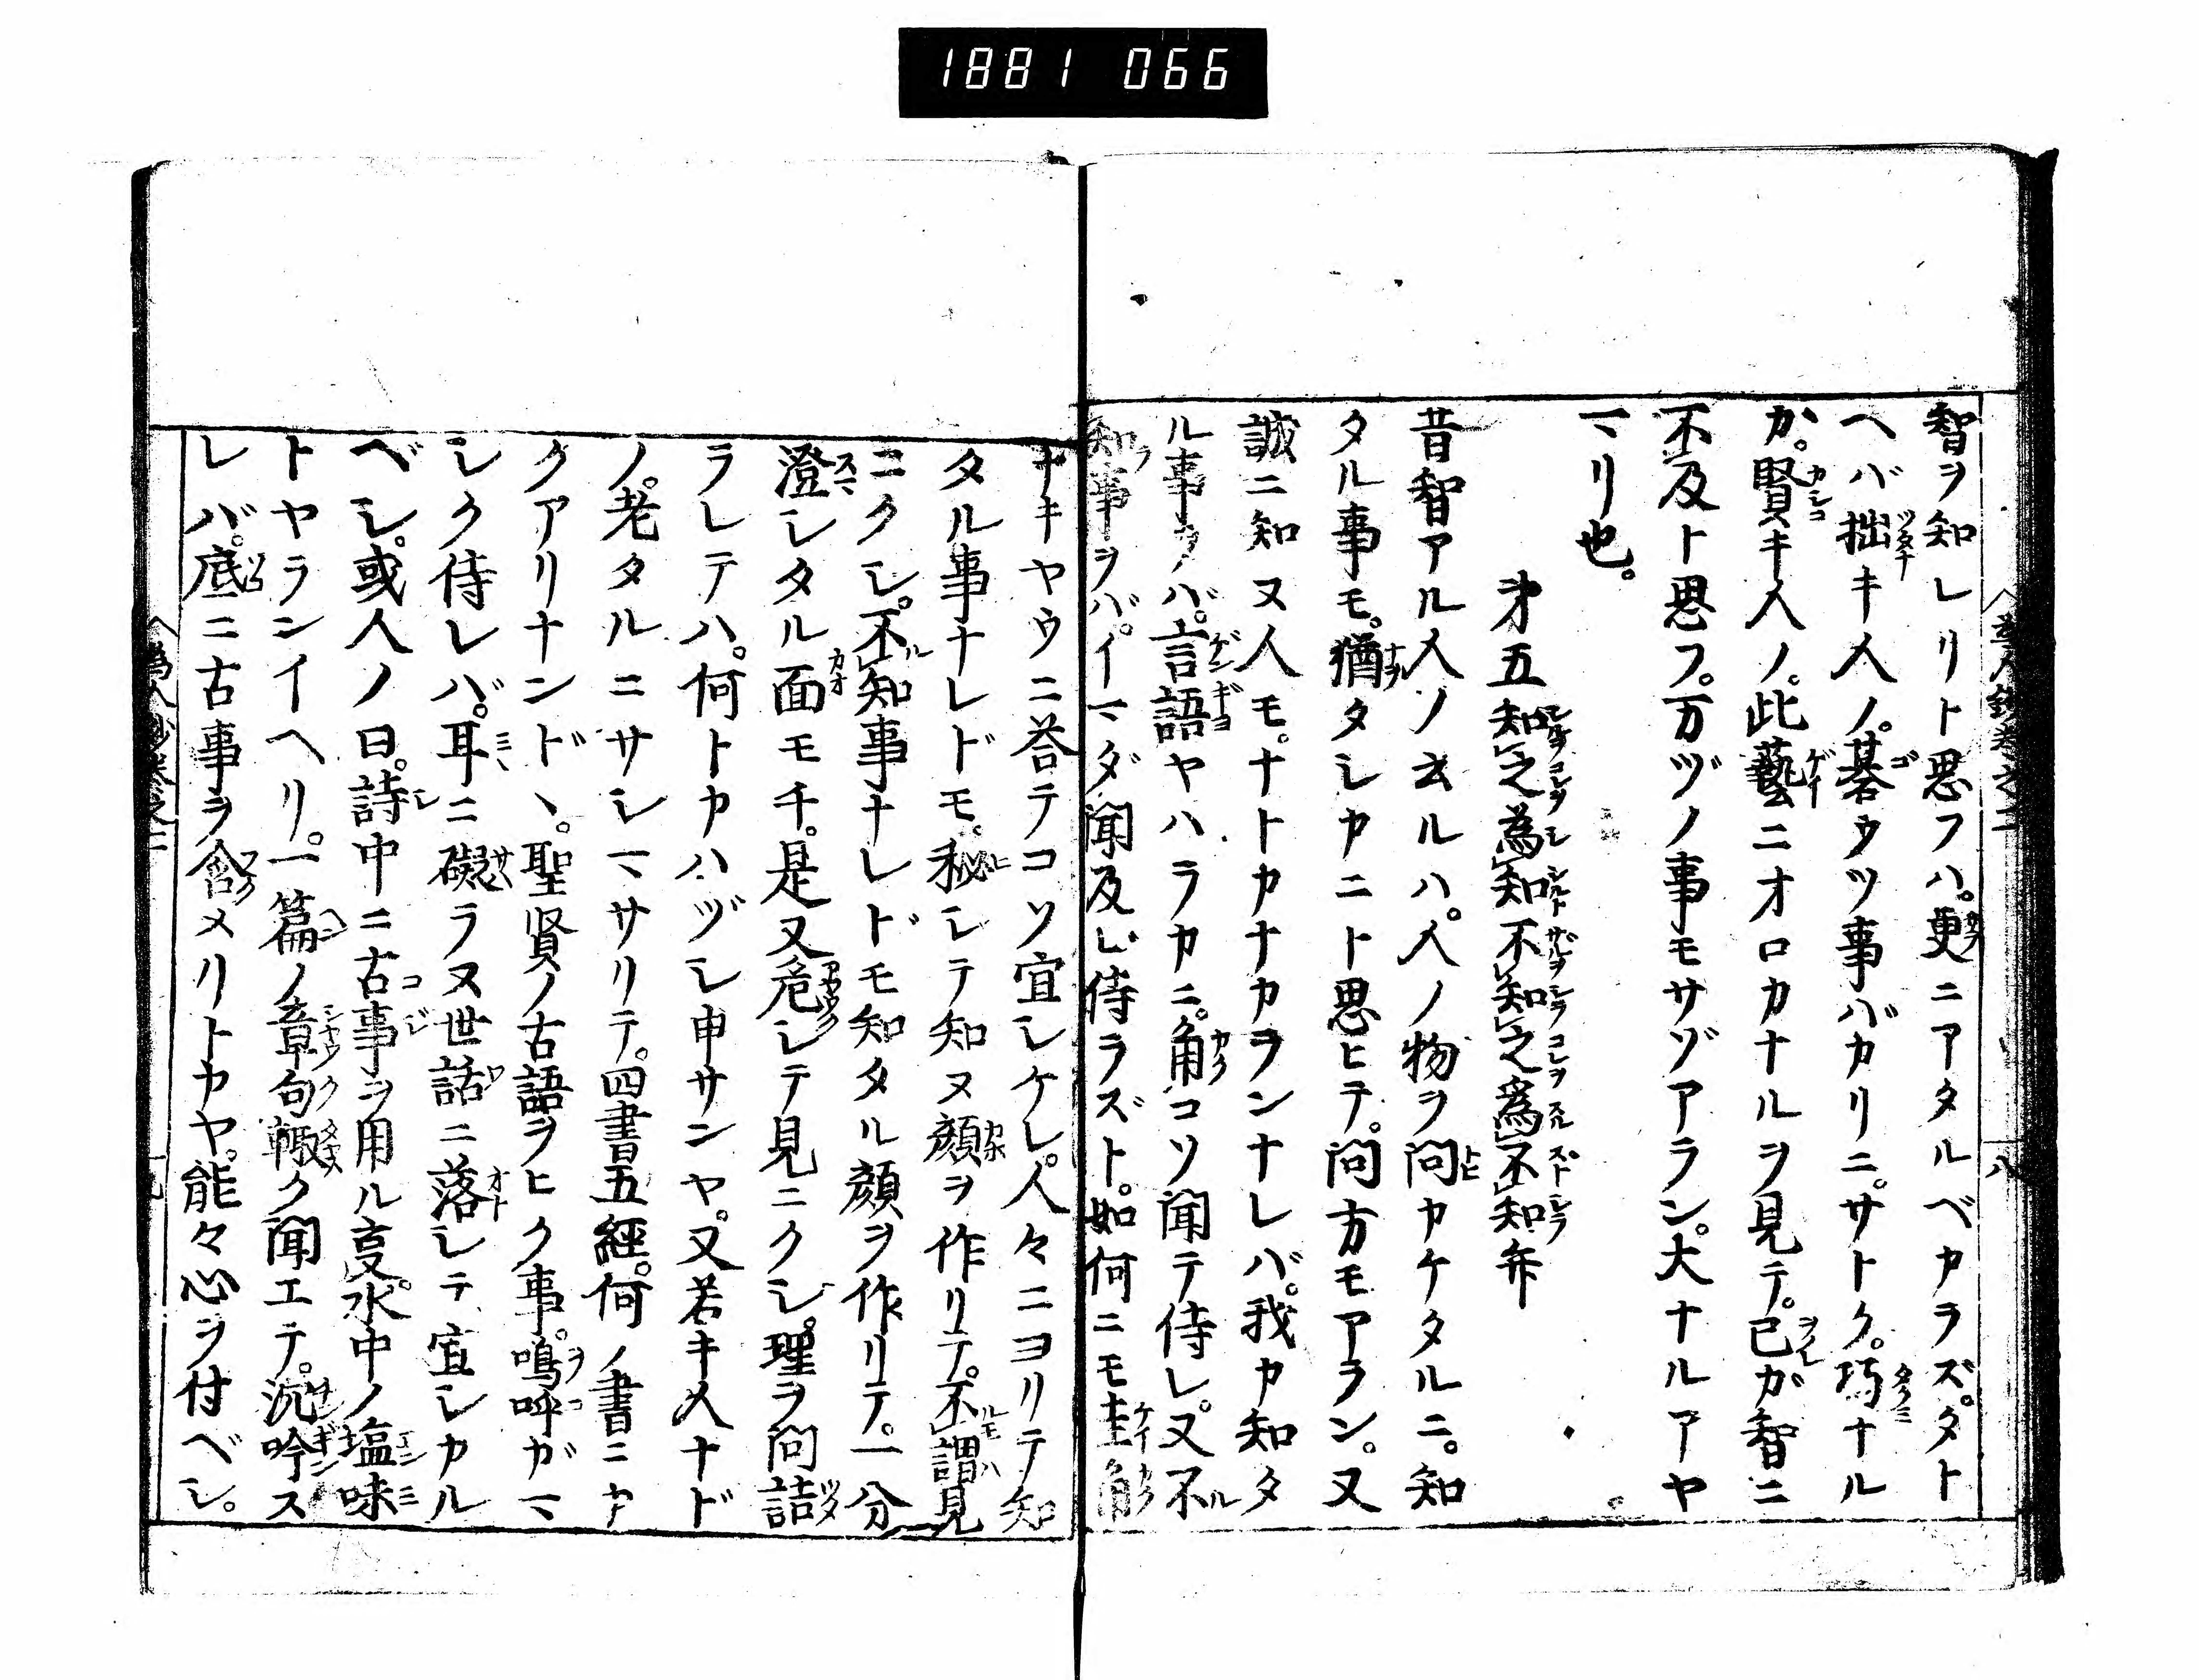 1881 066
智ヲ知レリト思フハ。更ニアタルベカラズ。タト
ヘバ拙キ人ノ。碁ウツ事バカリニ。サトク。巧ナル
カ。賢キ人ノ。此藝ニオロカナルヲ見テ。己ガ智ニ
不及ト思フ。万ヅノ事モサゾアラン。大ナルアヤ
マリ也。
才五知之為知不知之為不知弁
昔智アル人ノ云ルハ。人ノ物ヲ問カケタルニ。知
タル事モ。猶タシカニト思ヒテ。問方モアラン。又
誠ニ知ヌ人モ。ナトカナカランナレバ。我カ知タ
ル事ヲバ。言語ヤハラカニ。角コソ聞テ侍レ。又不
知事ヲバ。イマダ聞及レ侍ラズト。如何ニモ圭角
ナキヤウニ荅テコソ宜シケレ。人々ニヨリテ知
タル事ナレドモ。秘シテ知ヌ顔ヲ作リテ。不謂見
ニクシ。不知事ナレドモ知タル顔ヲ作リテ。一分
澄シタル面モチ。是又危シテ見ニクシ。理ヲ問詰
ラレテハ。何トカハヅシ申サンヤ。又若キ人ナド
ノ。老タルニサシマサリテ。四書五經。何ノ書ニカ
クアリナンドヽ。聖賢ノ古語ヲヒク事。嗚呼ガマ
シク侍レバ。耳ニ礙ラヌ世話ニ落シテ宜シカル
ベシ。或人ノ曰。詩中ニ古事ヲ用ル叓。水中ノ塩味
トヤランイヘリ。一篇ノ章句輙ク聞エテ。沉吟ス
レバ。底ニ古事ヲ含メリトカヤ。能々心ヲ付ベシ。